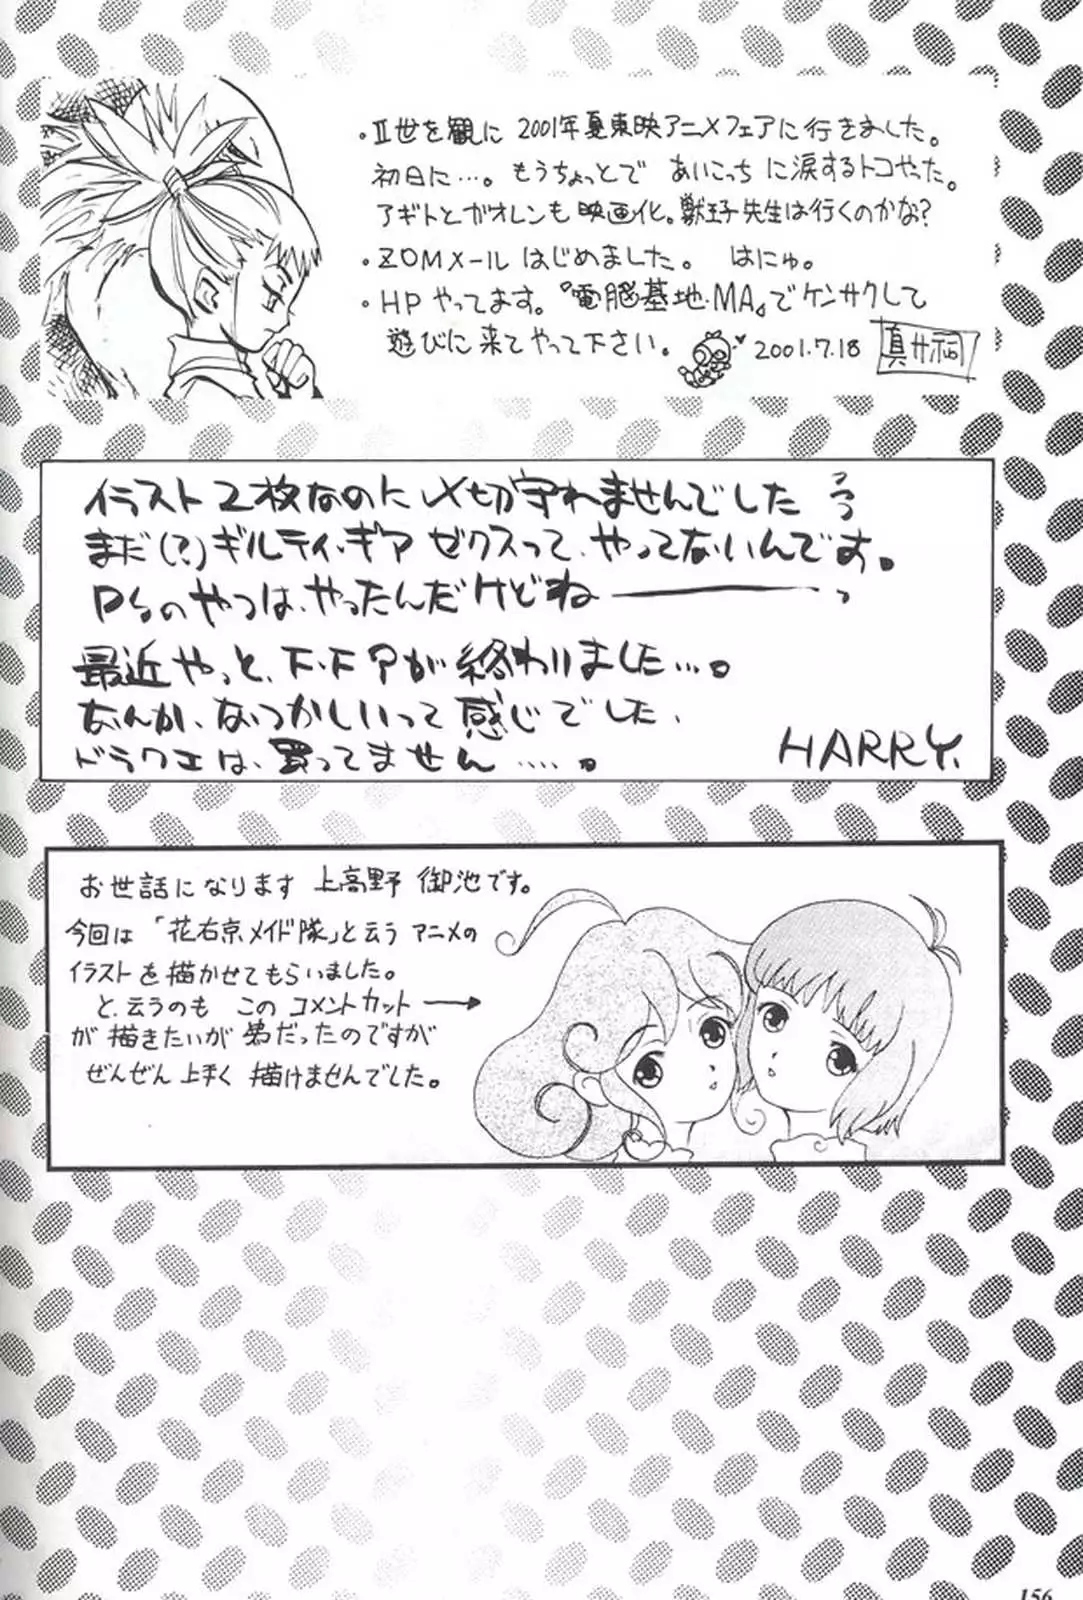 ・Ⅱ世を観に 2001年夏東映アニメフェアに行きました。
初日に…。もうちょっとで あいこっち に涙するトコやった。
アギトとガオレンも映画化。獣王子先生は行くのかな?
・ZOMメール はじめました。 はにゅ。
・HPやってます。『電脳基地・MA』でケンサクして
遊びに来てやって下さい。 2001.7.18
イラスト2枚なのに〆切守れませんでした
まだ(?)ギルティ・ギア ゼクスって、やってないんです。
PSのやつは、やったんだけどねーっ
最近やっと、が終わりました…。
なんか、なつかしいって感じでした、
ドラクエは、買ってません……。
HARRY.
お世話になります 上高野 御池です。
今回は「花右京メイド隊」と云う アニメの
イラストを描かせてもらいました。
と、云うのも このコメントカット→
が描きたいが為だったのですが
ぜんぜん上手く描けませんでした。
156